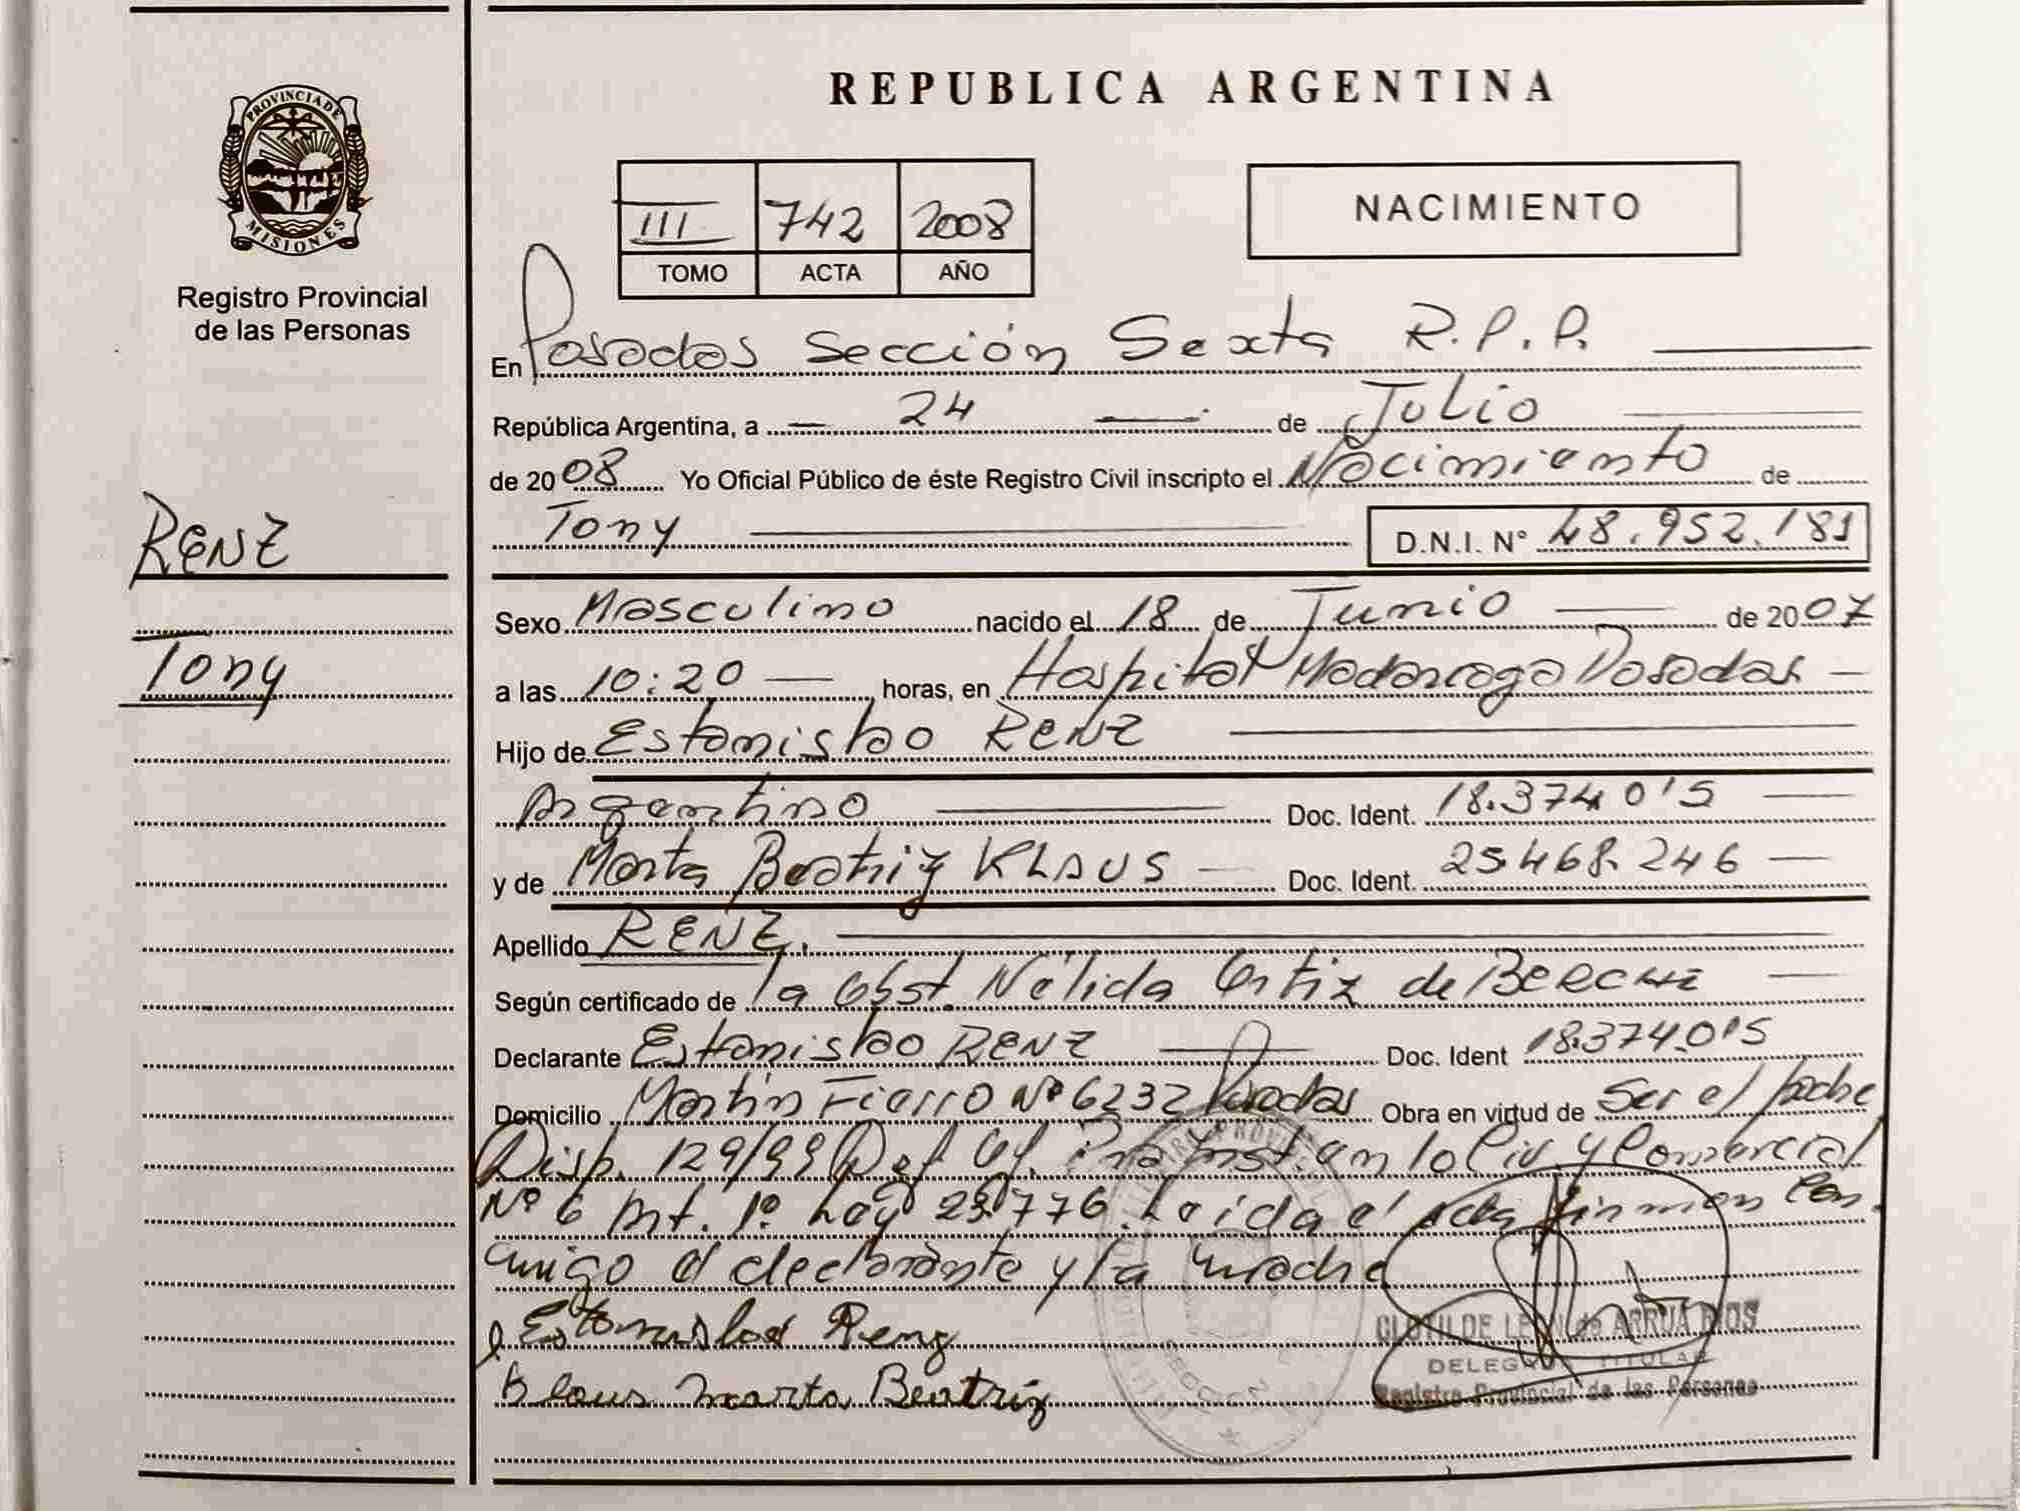 REPUBLICA ARGENTINA
PROVINCIA DE
MISIONES
Registro Provincial
de las Personas
III 742 2008
TOMO ACTA AÑO
NACIMIENTO
En Posadas Sección Sexta R.P.P.
República Argentina, a 24 de Julio
de 2008 Yo Oficial Público de éste Registro Civil inscripto el Nacimiento de
Tony D.N.I. N° 48.952.181
RENZ
Tony
Sexo Masculino nacido el 18 de Junio de 2007
a las 10:20 horas, en Hospital Madariaga Posadas
Hijo de Estanislao RENZ
Argentino Doc. Ident. 18.374.015
y de Marta Beatriz KLAUS Doc. Ident. 25.468.246
Apellido RENZ.
Según certificado de la Obst. Nélida Ortiz de
Declarante Estanislao RENZ Doc. Ident 18.374.015
Domicilio Martín Fierro Nº 6232 Posadas Obra en virtud de Ser el padre
Disp. 129/99 Def. Of. 1ra Inst. en lo Civ y Comercial
Nº 6 Art. 1º Ley 23.776. Leída el acta firman con
migo el declarante y la madre
Estanislao Renz
Klaus Marta Beatriz
CLOTILDE LEON de ARRUA RIOS
DELEGADA TITULAR
Registro Provincial de las Personas